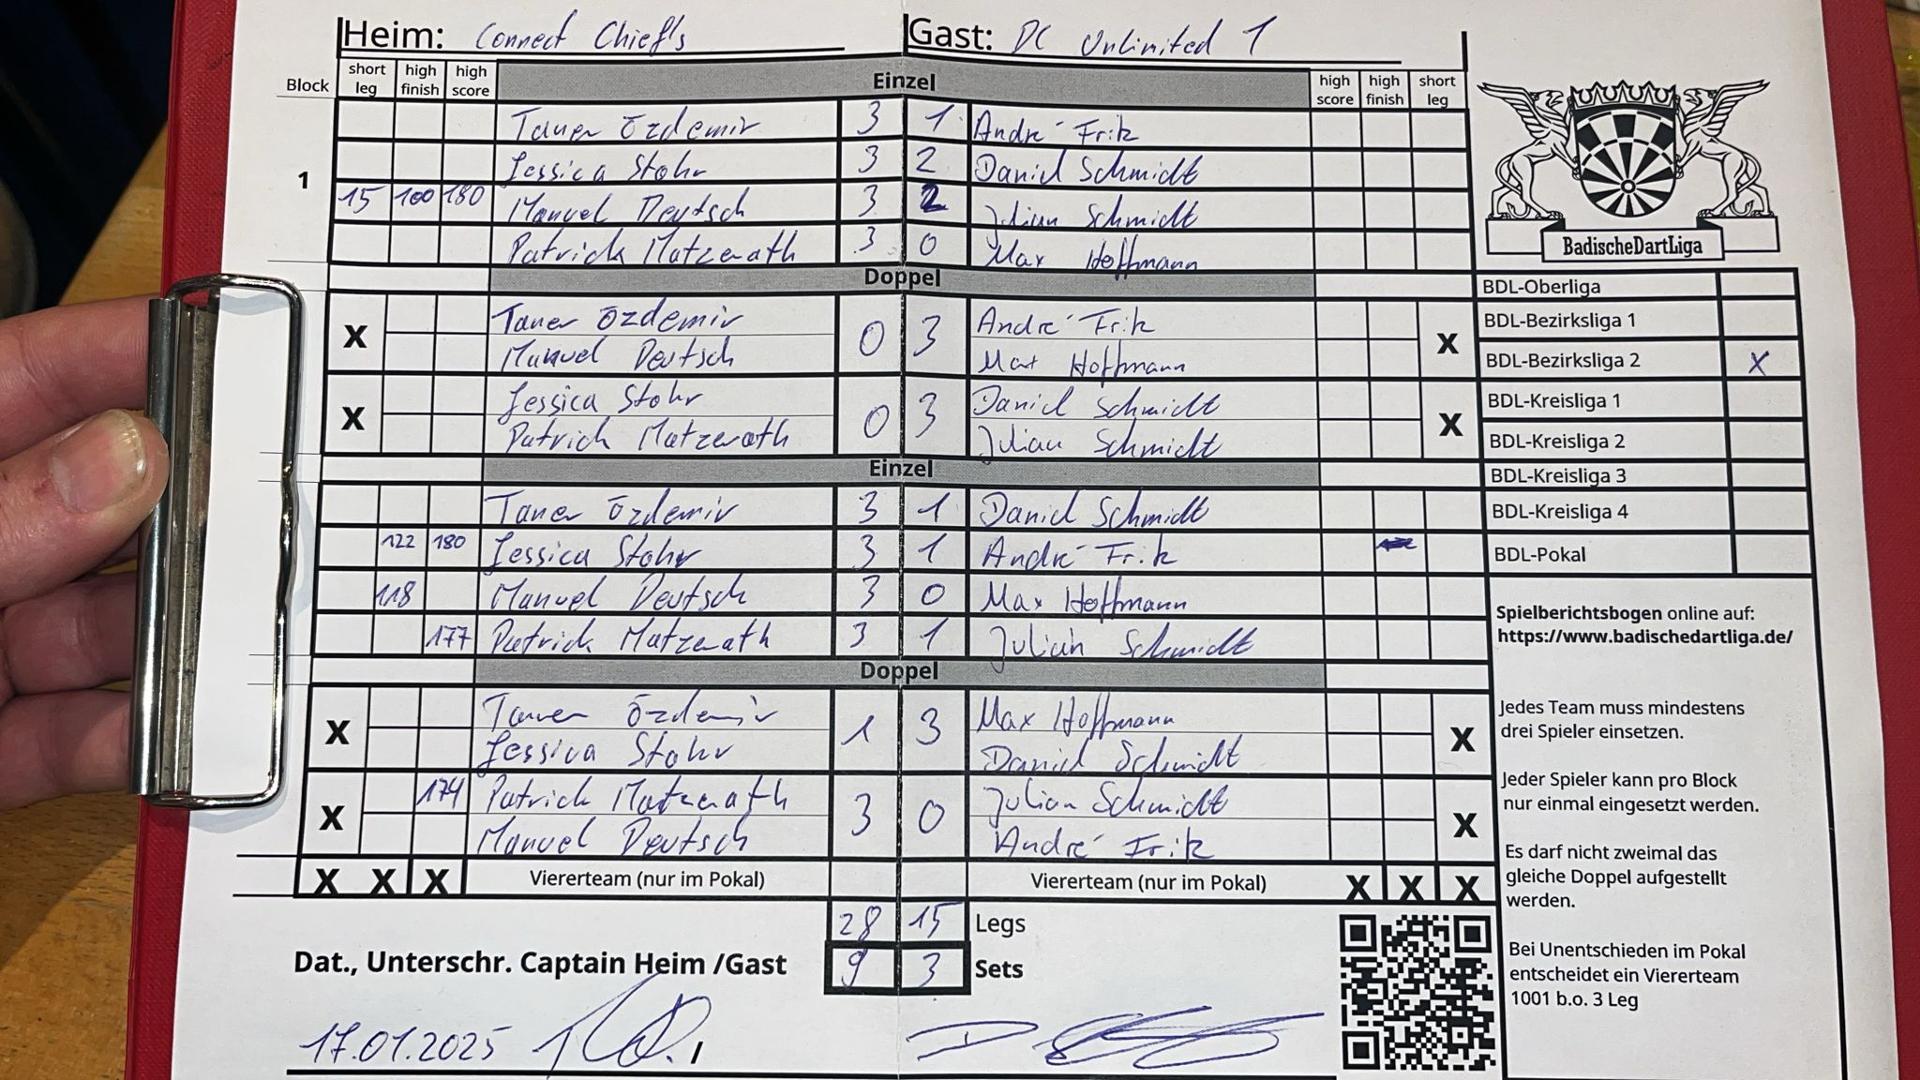 Heim: Connect Chiefs Gast: DC Unlimited 1
Block short leg high finish high score Einzel high score high finish short leg
Taner Özdemir 3 1 André Fritz
Jessica Stohr 3 2 Daniel Schmidt
1 15 100 180 Manuel Deutsch 3 2 Julian Schmidt
Patrick Matzerath 3 0 Max Hoffmann
Doppel
X Taner Özdemir 0 3 André Fritz X
Manuel Deutsch Max Hoffmann
X Jessica Stohr 0 3 Daniel Schmidt X
Patrick Matzerath Julian Schmidt
Einzel
Taner Özdemir 3 1 Daniel Schmidt
122 180 Jessica Stohr 3 1 André Fritz
118 Manuel Deutsch 3 0 Max Hoffmann
177 Patrick Matzerath 3 1 Julian Schmidt
Doppel
X Taner Özdemir 1 3 Max Hoffmann X
Jessica Stohr Daniel Schmidt
X 174 Patrick Matzerath 3 0 Julian Schmidt X
Manuel Deutsch André Fritz
X X X Viererteam (nur im Pokal) Viererteam (nur im Pokal) X X X
28 15 Legs
Dat., Unterschr. Captain Heim /Gast 9 3 Sets
17.01.2025
BadischeDartLiga
BDL-Oberliga
BDL-Bezirksliga 1
BDL-Bezirksliga 2 X
BDL-Kreisliga 1
BDL-Kreisliga 2
BDL-Kreisliga 3
BDL-Kreisliga 4
BDL-Pokal
Spielberichtsbogen online auf:
https://www.badischedartliga.de/
Jedes Team muss mindestens
drei Spieler einsetzen.
Jeder Spieler kann pro Block
nur einmal eingesetzt werden.
Es darf nicht zweimal das
gleiche Doppel aufgestellt
werden.
Bei Unentschieden im Pokal
entscheidet ein Viererteam
1001 b.o. 3 Leg